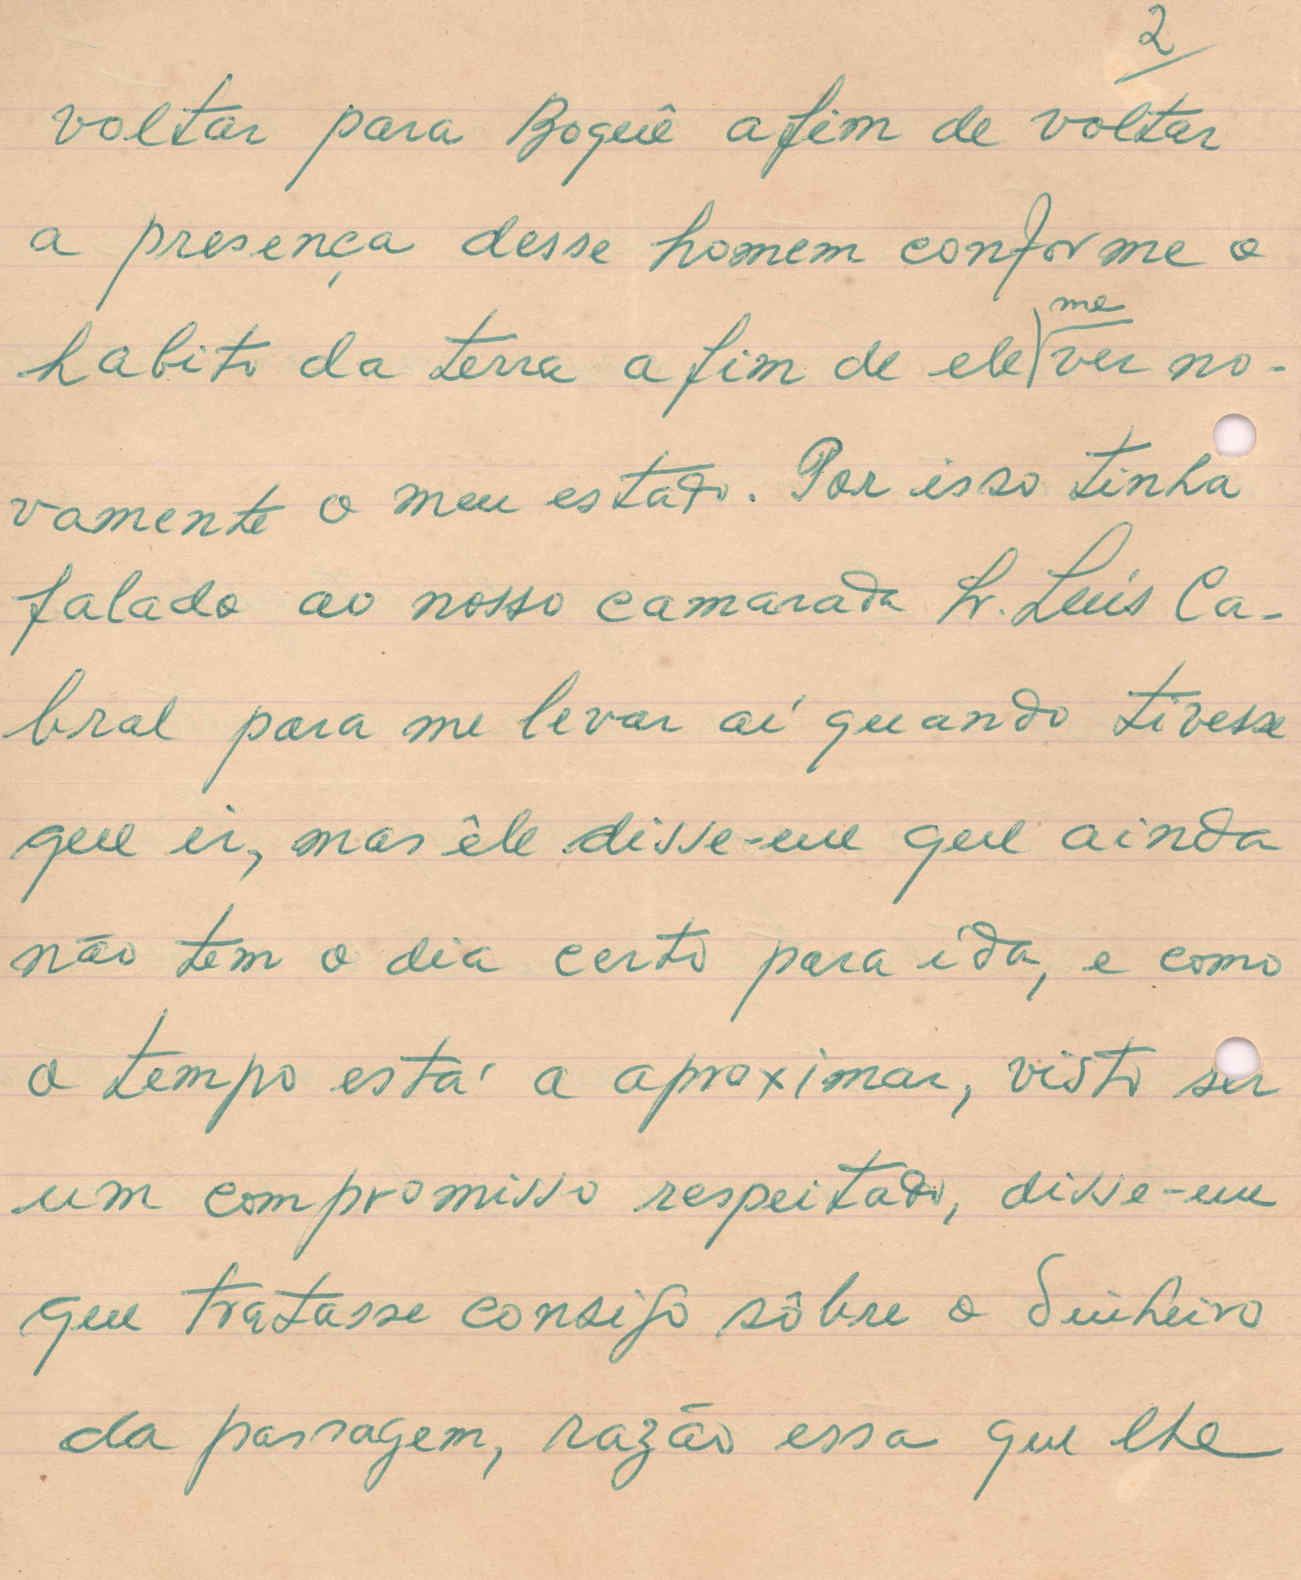 2
voltar para Boquê afim de voltar
a presença desse homem conforme o
habito da terra afim de ele me ver no-
vamente o meu estado. Por isso tinha
falado ao nosso camarada Sr. Luís Ca-
bral para me levar aí quando tivesse
que ir, mas êle disse-me que ainda
não tem o dia certo para ida, e como
o tempo está a aproximar, visto ser
um compromisso respeitado, disse-me
que tratasse consigo sôbre o dinheiro
da passagem, razão essa que lhe